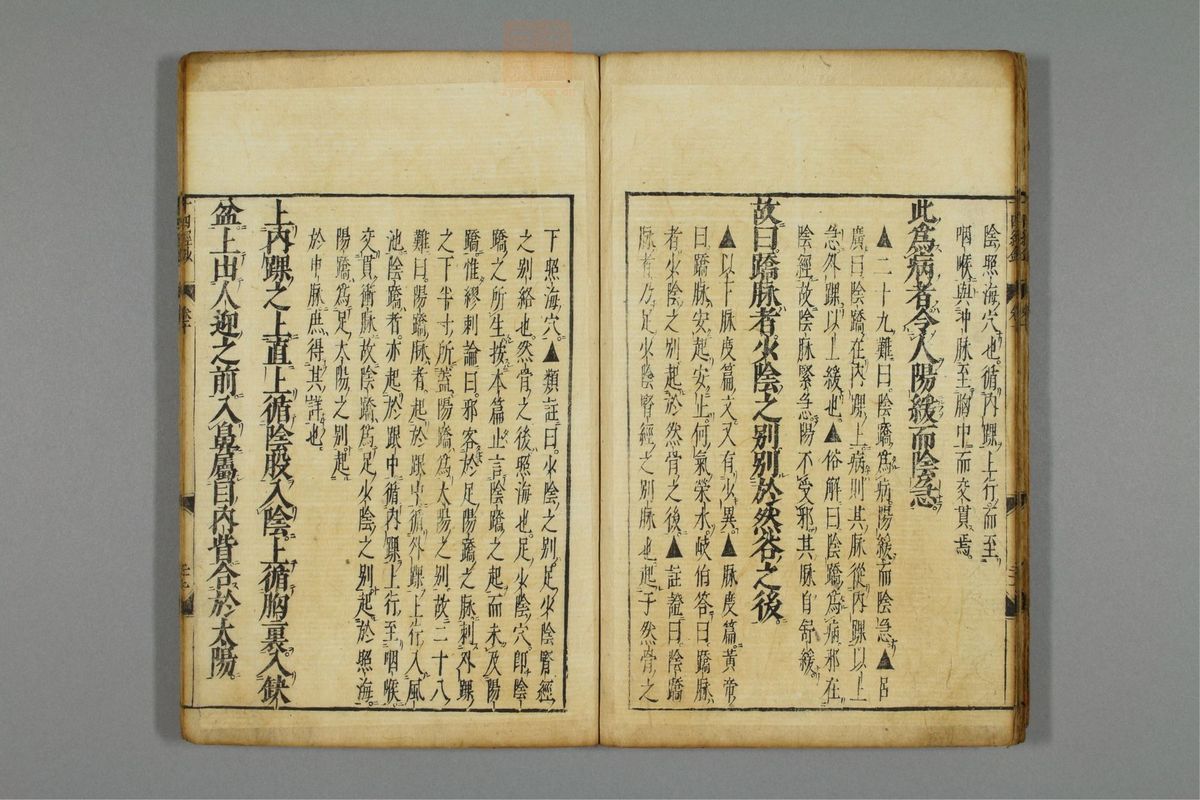 陰照海穴也。循内踝上行。而至
咽喉。與冲脉至胸中而交貫焉
此爲病者。令人陽緩而陰急。
▲二十九難曰。陰蹻爲病。陽緩而陰急。▲呂
廣曰。陰蹻在内踝上。病則其脉從内踝以上
急。外踝以上緩也。▲俗解曰。陰蹻爲病。邪在
陰經。故陰脉緊急。陽不受邪。其脉自舒緩
故曰蹻脉者少陰之別別於然谷之後。
▲以下脉度篇文又有少異。▲脉度篇。黄帝
曰。蹻脉安起安止。何氣榮水。岐伯答曰。蹻脉
者。少陰之別。起於然骨之後。▲註證曰。陰蹻
脉者。乃足少陰腎經之別脉也。起于然骨之
下照海穴。▲類註曰。少陰之別。足少陰腎經
之別絡也。然骨之後。照海也。足少陰穴。即陰
蹻之所生。按本篇止言陰蹻之起。而未及陽
蹻。惟繆刺論曰。邪客於足陽蹻之脉。刺外踝
之下半寸所。蓋陽蹻爲太陽之別。故二十八
難曰。陽蹻脉者。起於跟中。循外踝上行。入風
池。陰蹻者。亦起於跟中。循内踝上行。至咽喉。
交貫衝脉。故陰蹻爲足少陰之別。起於照海。
陽蹻爲足太陽之別。起
於申脉。庶得其詳也。
上内踝之上。直上循陰股入陰。上循胸裏入缺
盆上出人迎之前。入鼻屬目内眥。合於太陽